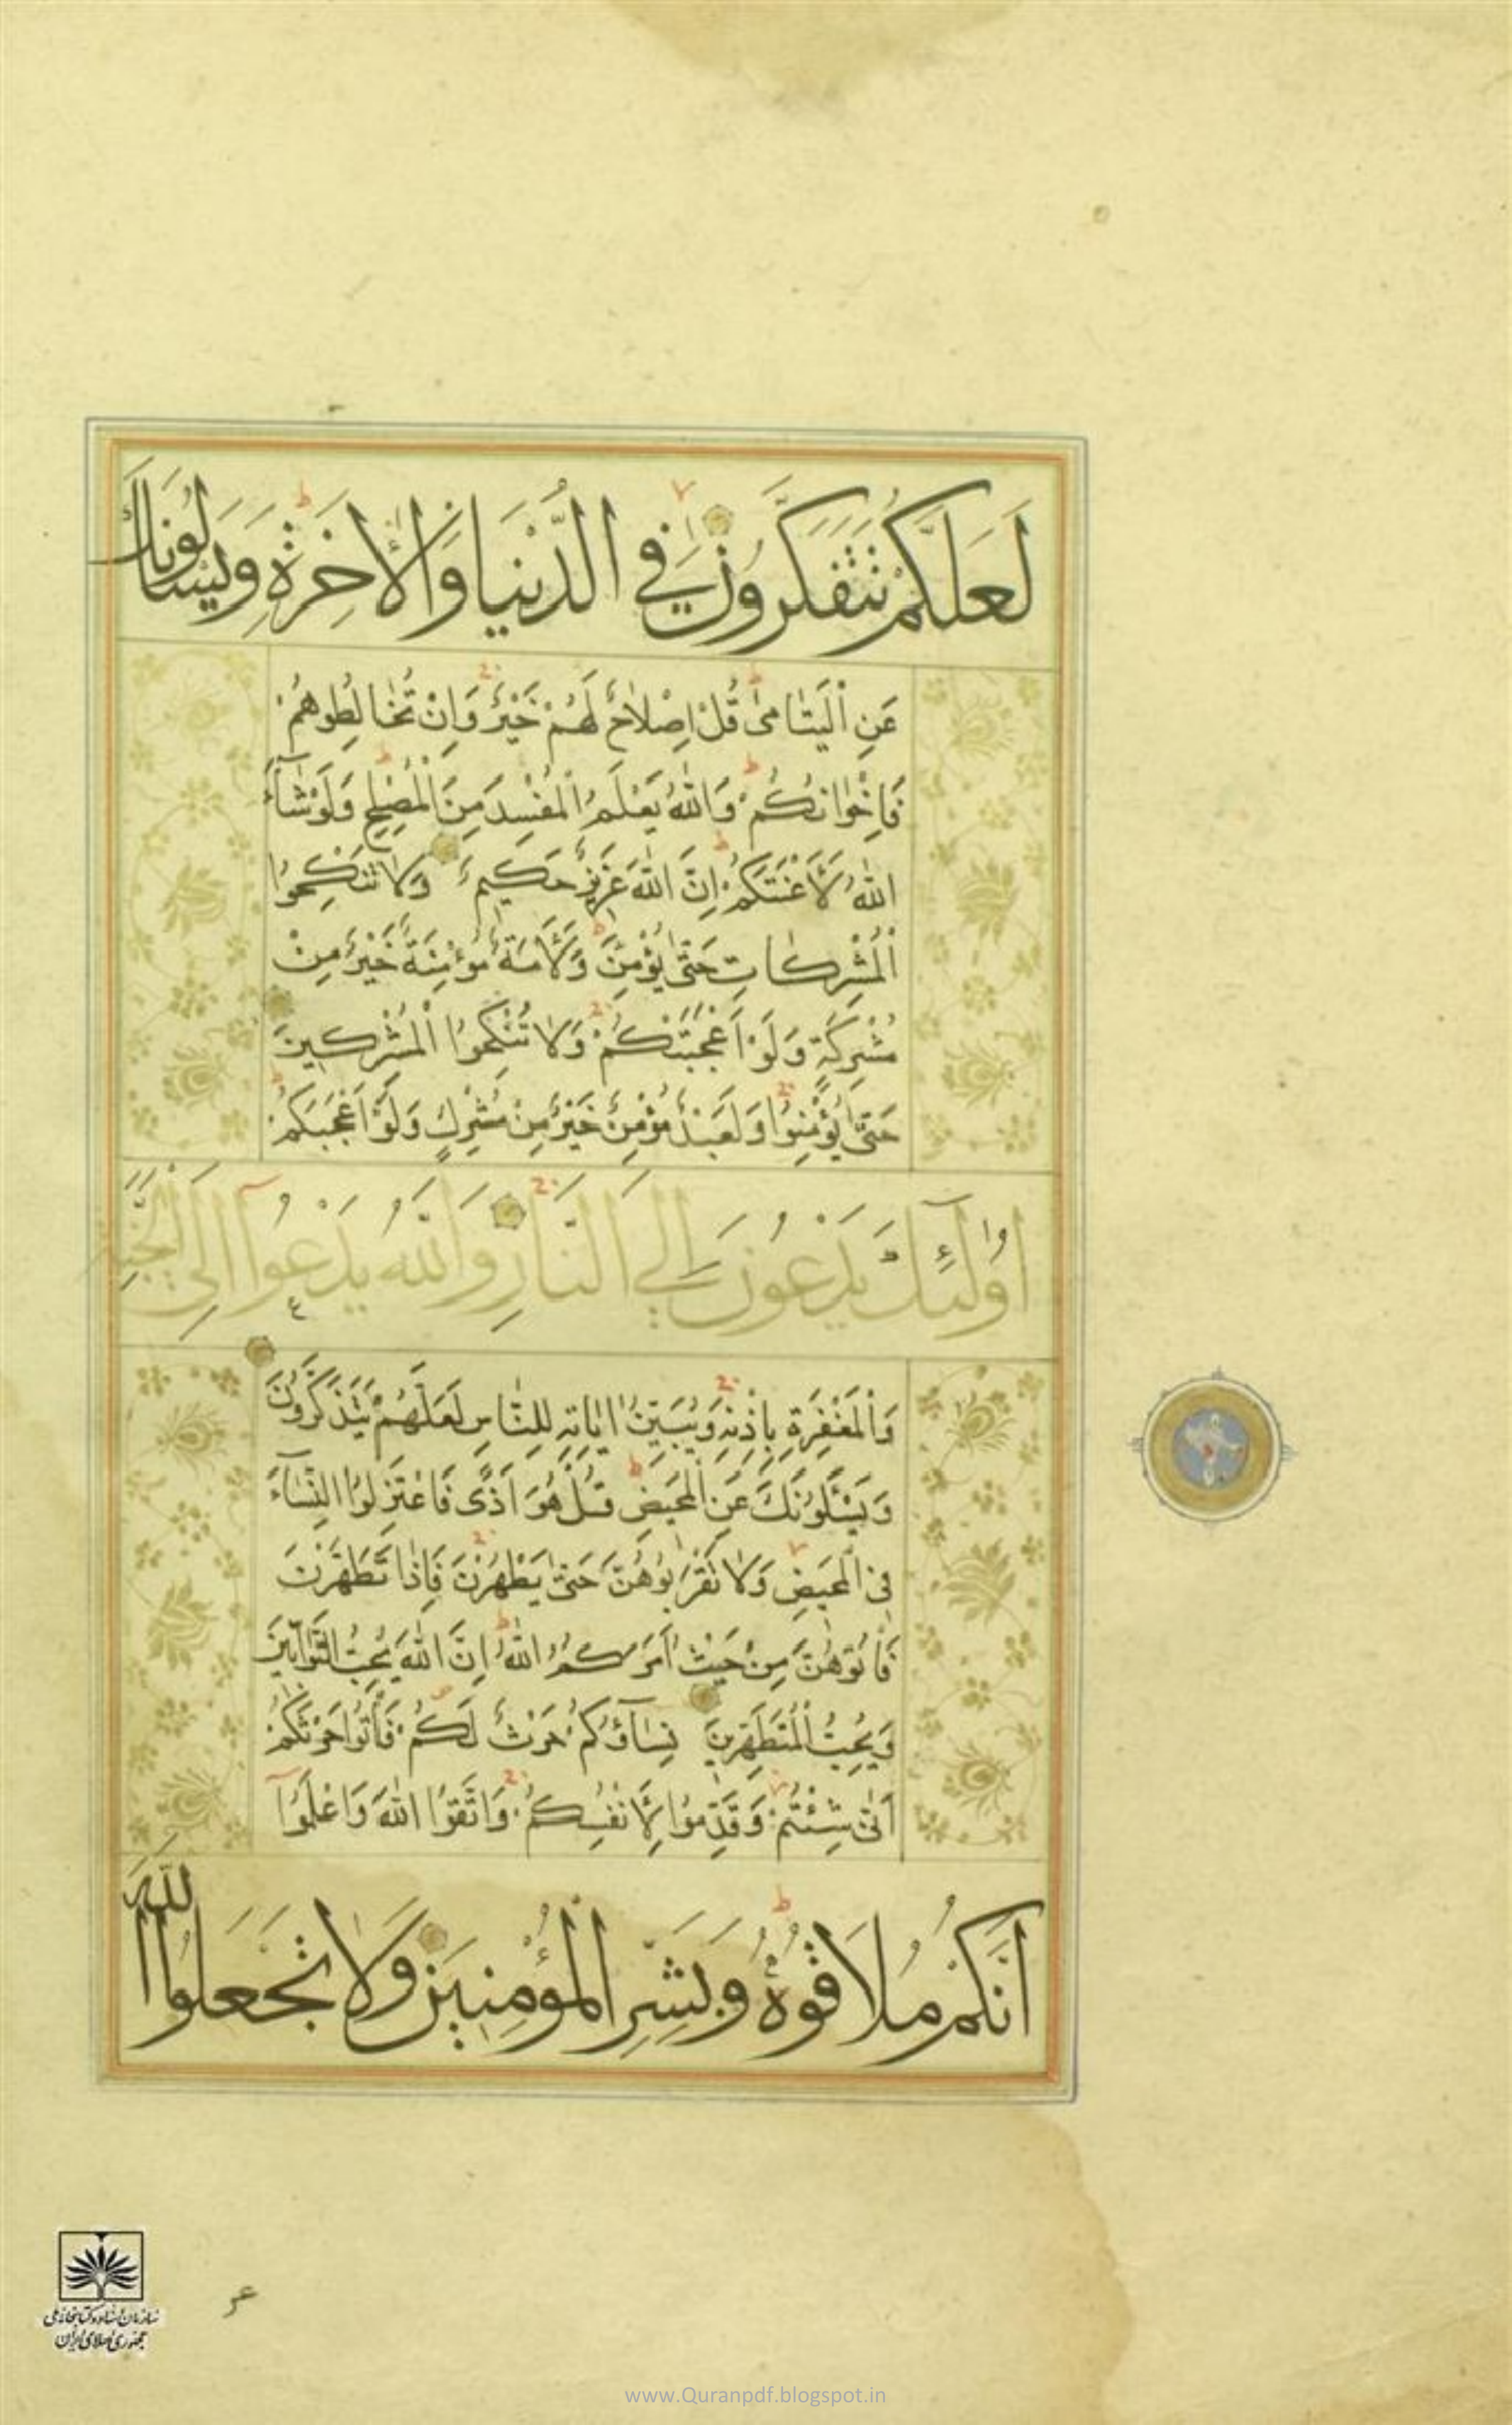 لَعَلَّكُمْ تَتَفَكَّرُونَ فِي الدُّنْيَا وَالْاٰخِرَةِ وَيَسْـَٔلُونَكَ
عَنِ الْيَتَامٰى قُلْ اِصْلَاحٌ لَهُمْ خَيْرٌ وَاِنْ تُخَالِطُوهُمْ
فَاِخْوَانُكُمْ وَاللّٰهُ يَعْلَمُ الْمُفْسِدَ مِنَ الْمُصْلِحِ وَلَوْ شَآءَ
اللّٰهُ لَاَعْنَتَكُمْ اِنَّ اللّٰهَ عَزِيزٌ حَكِيمٌ وَلَا تَنْكِحُوا
الْمُشْرِكَاتِ حَتّٰى يُؤْمِنَّ وَلَاَمَةٌ مُؤْمِنَةٌ خَيْرٌ مِنْ
مُشْرِكَةٍ وَلَوْ اَعْجَبَتْكُمْ وَلَا تُنْكِحُوا الْمُشْرِكِينَ
حَتّٰى يُؤْمِنُوا وَلَعَبْدٌ مُؤْمِنٌ خَيْرٌ مِنْ مُشْرِكٍ وَلَوْ اَعْجَبَكُمْ
اُولٰٓئِكَ يَدْعُونَ اِلَى النَّارِ وَاللّٰهُ يَدْعُوٓا اِلَى الْجَنَّةِ
وَالْمَغْفِرَةِ بِاِذْنِهِ وَيُبَيِّنُ اٰيَاتِهِ لِلنَّاسِ لَعَلَّهُمْ يَتَذَكَّرُونَ
وَيَسْـَٔلُونَكَ عَنِ الْمَحِيضِ قُلْ هُوَ اَذًى فَاعْتَزِلُوا النِّسَآءَ
فِي الْمَحِيضِ وَلَا تَقْرَبُوهُنَّ حَتّٰى يَطْهُرْنَ فَاِذَا تَطَهَّرْنَ
فَأْتُوهُنَّ مِنْ حَيْثُ اَمَرَكُمُ اللّٰهُ اِنَّ اللّٰهَ يُحِبُّ التَّوَّابِينَ
وَيُحِبُّ الْمُتَطَهِّرِينَ نِسَآؤُكُمْ حَرْثٌ لَكُمْ فَأْتُوا حَرْثَكُمْ
اَنّٰى شِئْتُمْ وَقَدِّمُوا لِاَنْفُسِكُمْ وَاتَّقُوا اللّٰهَ وَاعْلَمُوٓا
اَنَّكُمْ مُلَاقُوهُ وَبَشِّرِ الْمُؤْمِنِينَ وَلَا تَجْعَلُوا اللّٰهَ
سازمان اسناد و کتابخانه ملی
جمهوری اسلامی ایران
www.Quranpdf.blogspot.in